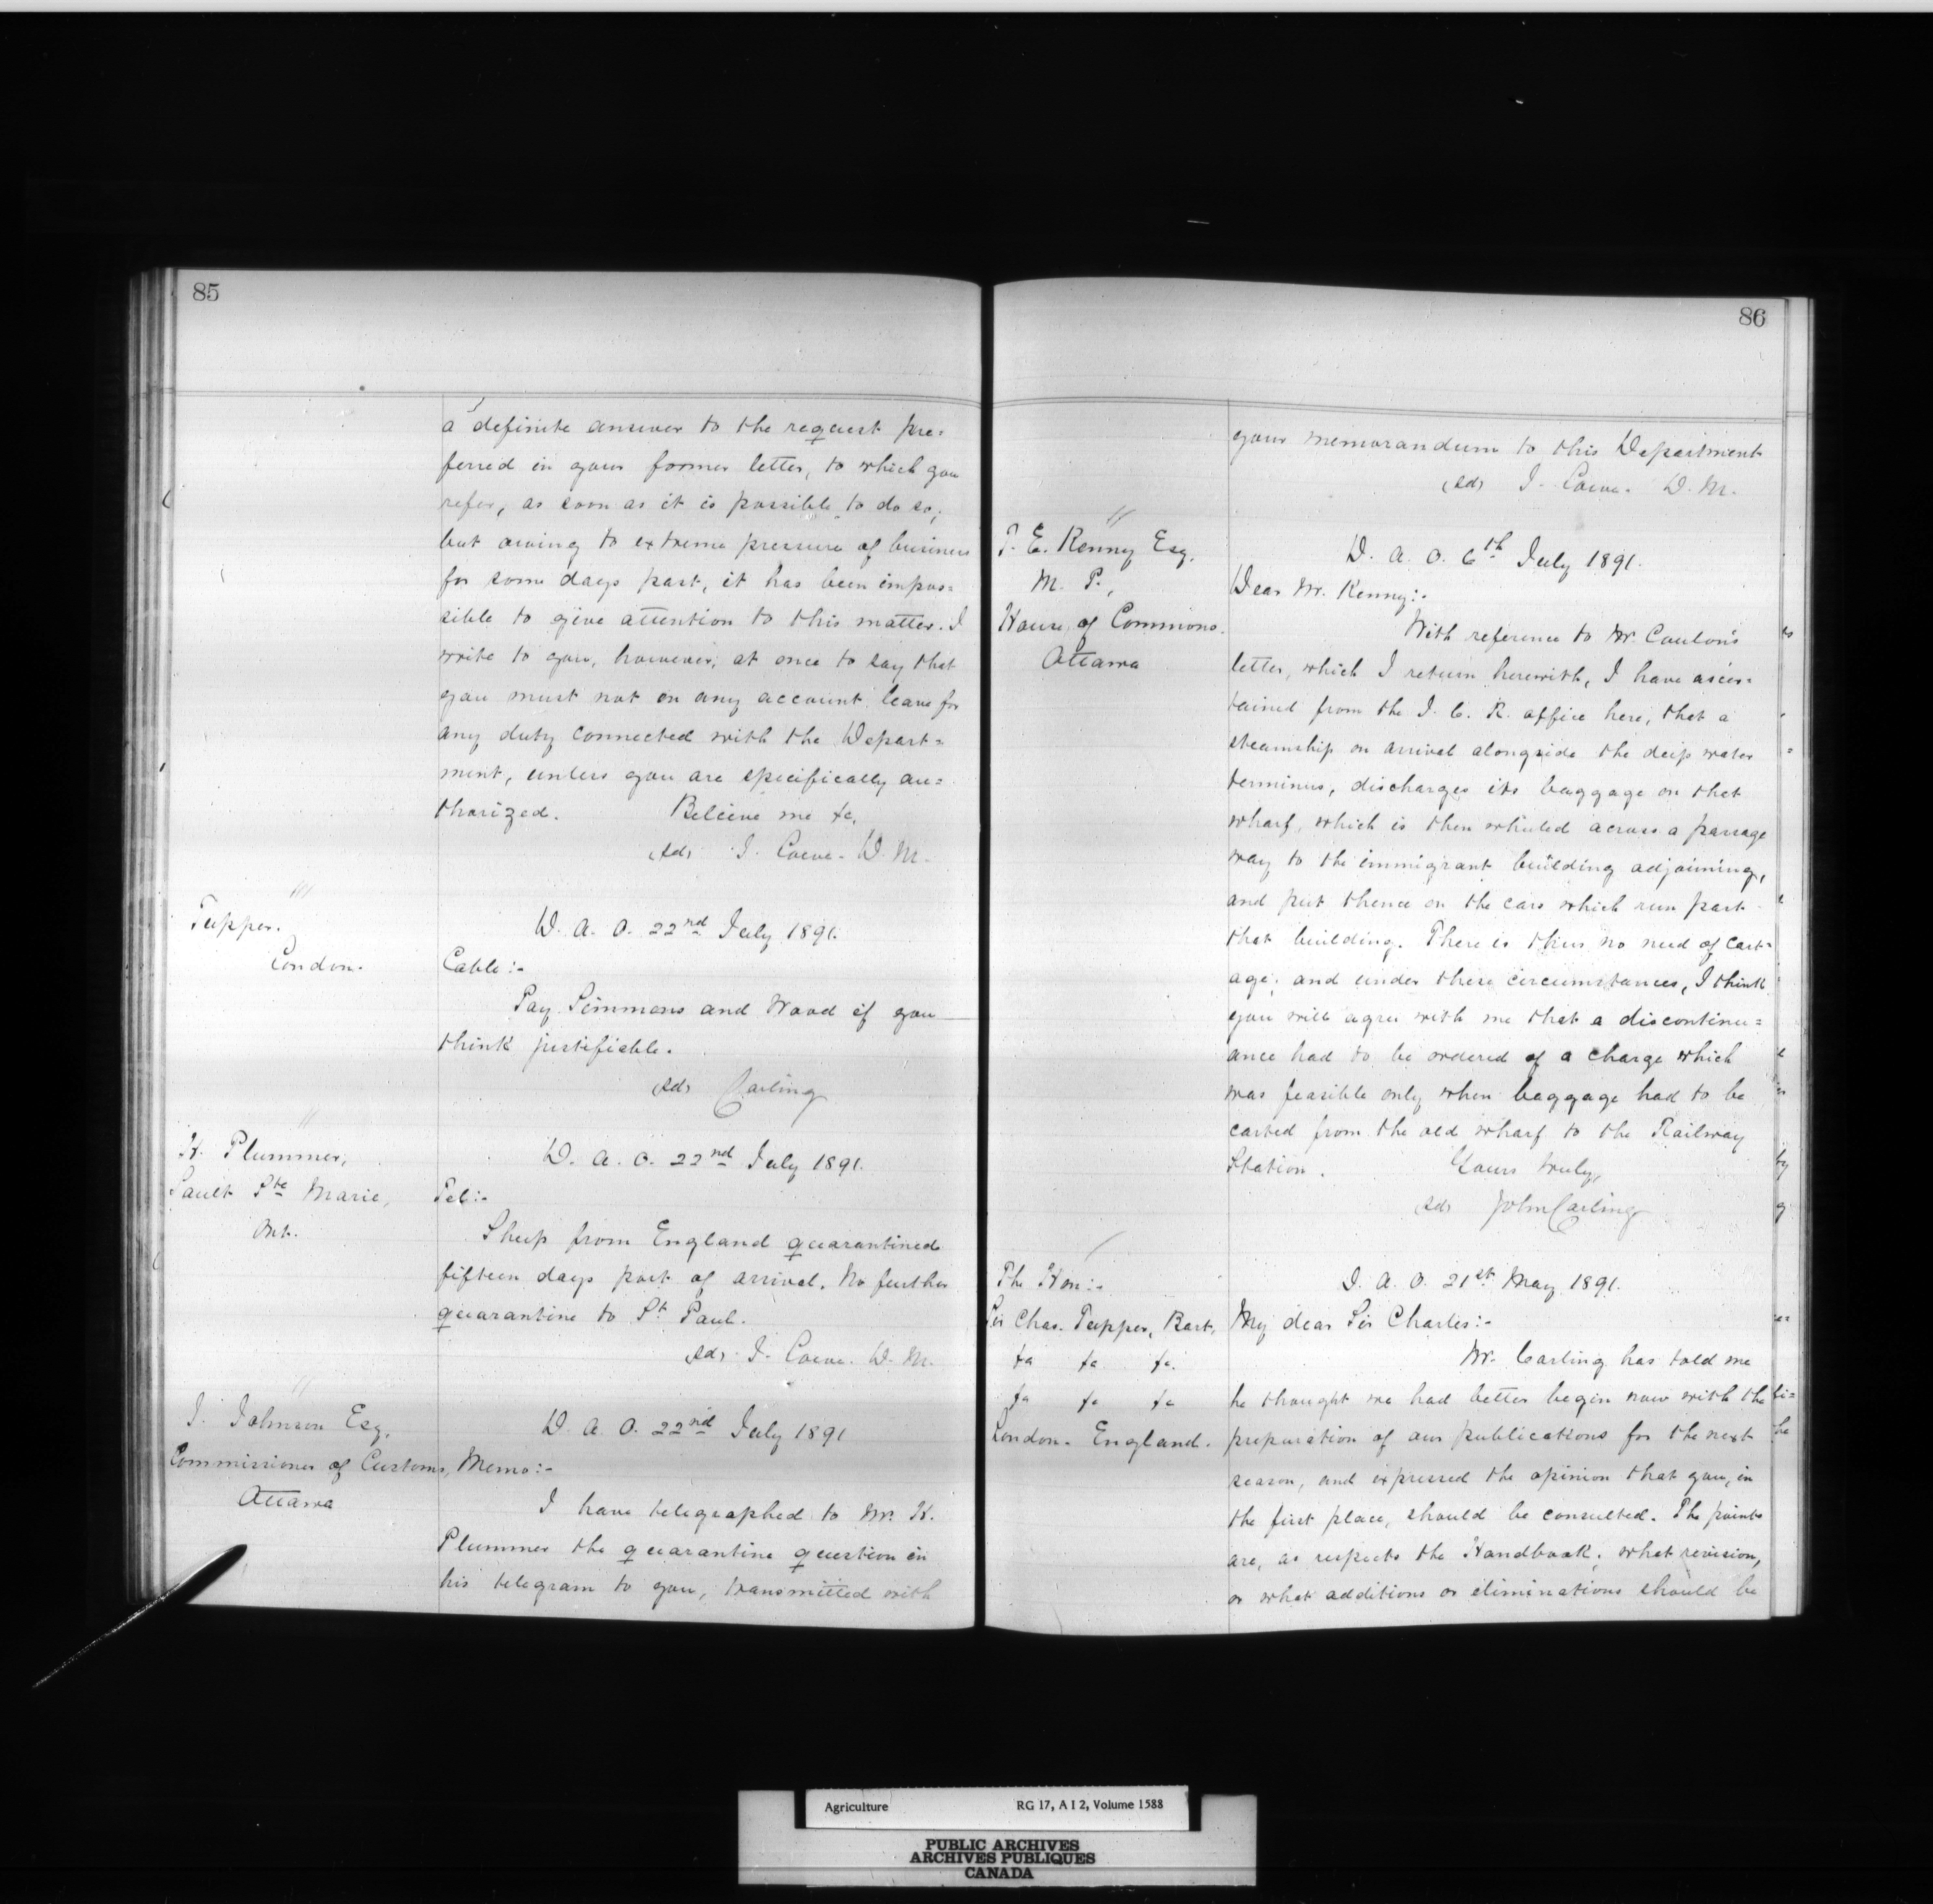 85
a definite answer to the request pre=
ferred in your former letter, to which you
refer, as soon as it is possible to do so;
but owing to extreme pressure of business
for some days past, it has been impos=
sible to give attention to this matter. I
write to you, however, at once to say that
you must not on any account leave for
any duty connected with the Depart=
ment, unless you are specifically au=
thorized. Believe me &c,
(Sd) J. Lowe. D. M.
Tupper.
London.
D. A. O. 22nd July 1891.
Cable:-
Pay Simmons and Wood if you
think justifiable.
(Sd) Carling
H. Plummer,
Sault Ste Marie,
Ont.
D. A. O. 22nd July 1891.
Tel:-
Sheep from England quarantined
fifteen days port of arrival. No further
quarantine to St Paul.
(Sd) J. Lowe. D. M.
J. Johnson Esq.
Commissioner of Customs,
Ottawa
D. A. O. 22nd July 1891
Memo:-
I have telegraphed to Mr. H.
Plummer the quarantine question in
his telegram to you, transmitted with
86
your memorandum to this Department
(Sd) J. Lowe. D. M.
T. E. Kenny Esq.
M. P.,
House of Commons.
Ottawa
D. A. O. 6th July 1891.
Dear Mr. Kenny:-
With reference to Mr. Coulon's
letter, which I return herewith, I have ascer=
tained from the I. C. R. office here, that a
steamship on arrival alongside the deep water
terminus, discharges its baggage on that
wharf, which is then wheeled across a passage
way to the immigrant building adjoining,
and put thence on the cars which run past
that building. There is thus no need of cart=
age; and under these circumstances, I think
you will agree with me that a discontinu=
ance had to be ordered of a charge which
was feasible only when baggage had to be
carted from the old wharf to the Railway
Station. Yours truly,
(Sd) John Carling
The Hon:-
Sir Chas. Tupper, Bart,
&c &c &c.
&c &c &c
London. England.
D. A. O. 21st May 1891.
My dear Sir Charles:-
Mr. Carling has told me
he thought we had better begin now with the
preparation of our publications for the next
season, and expressed the opinion that you, in
the first place, should be consulted. The points
are, as respects the Handbook; what revision,
or what additions or eliminations should be
Agriculture RG 17, A I 2, Volume 1588
PUBLIC ARCHIVES
ARCHIVES PUBLIQUES
CANADA